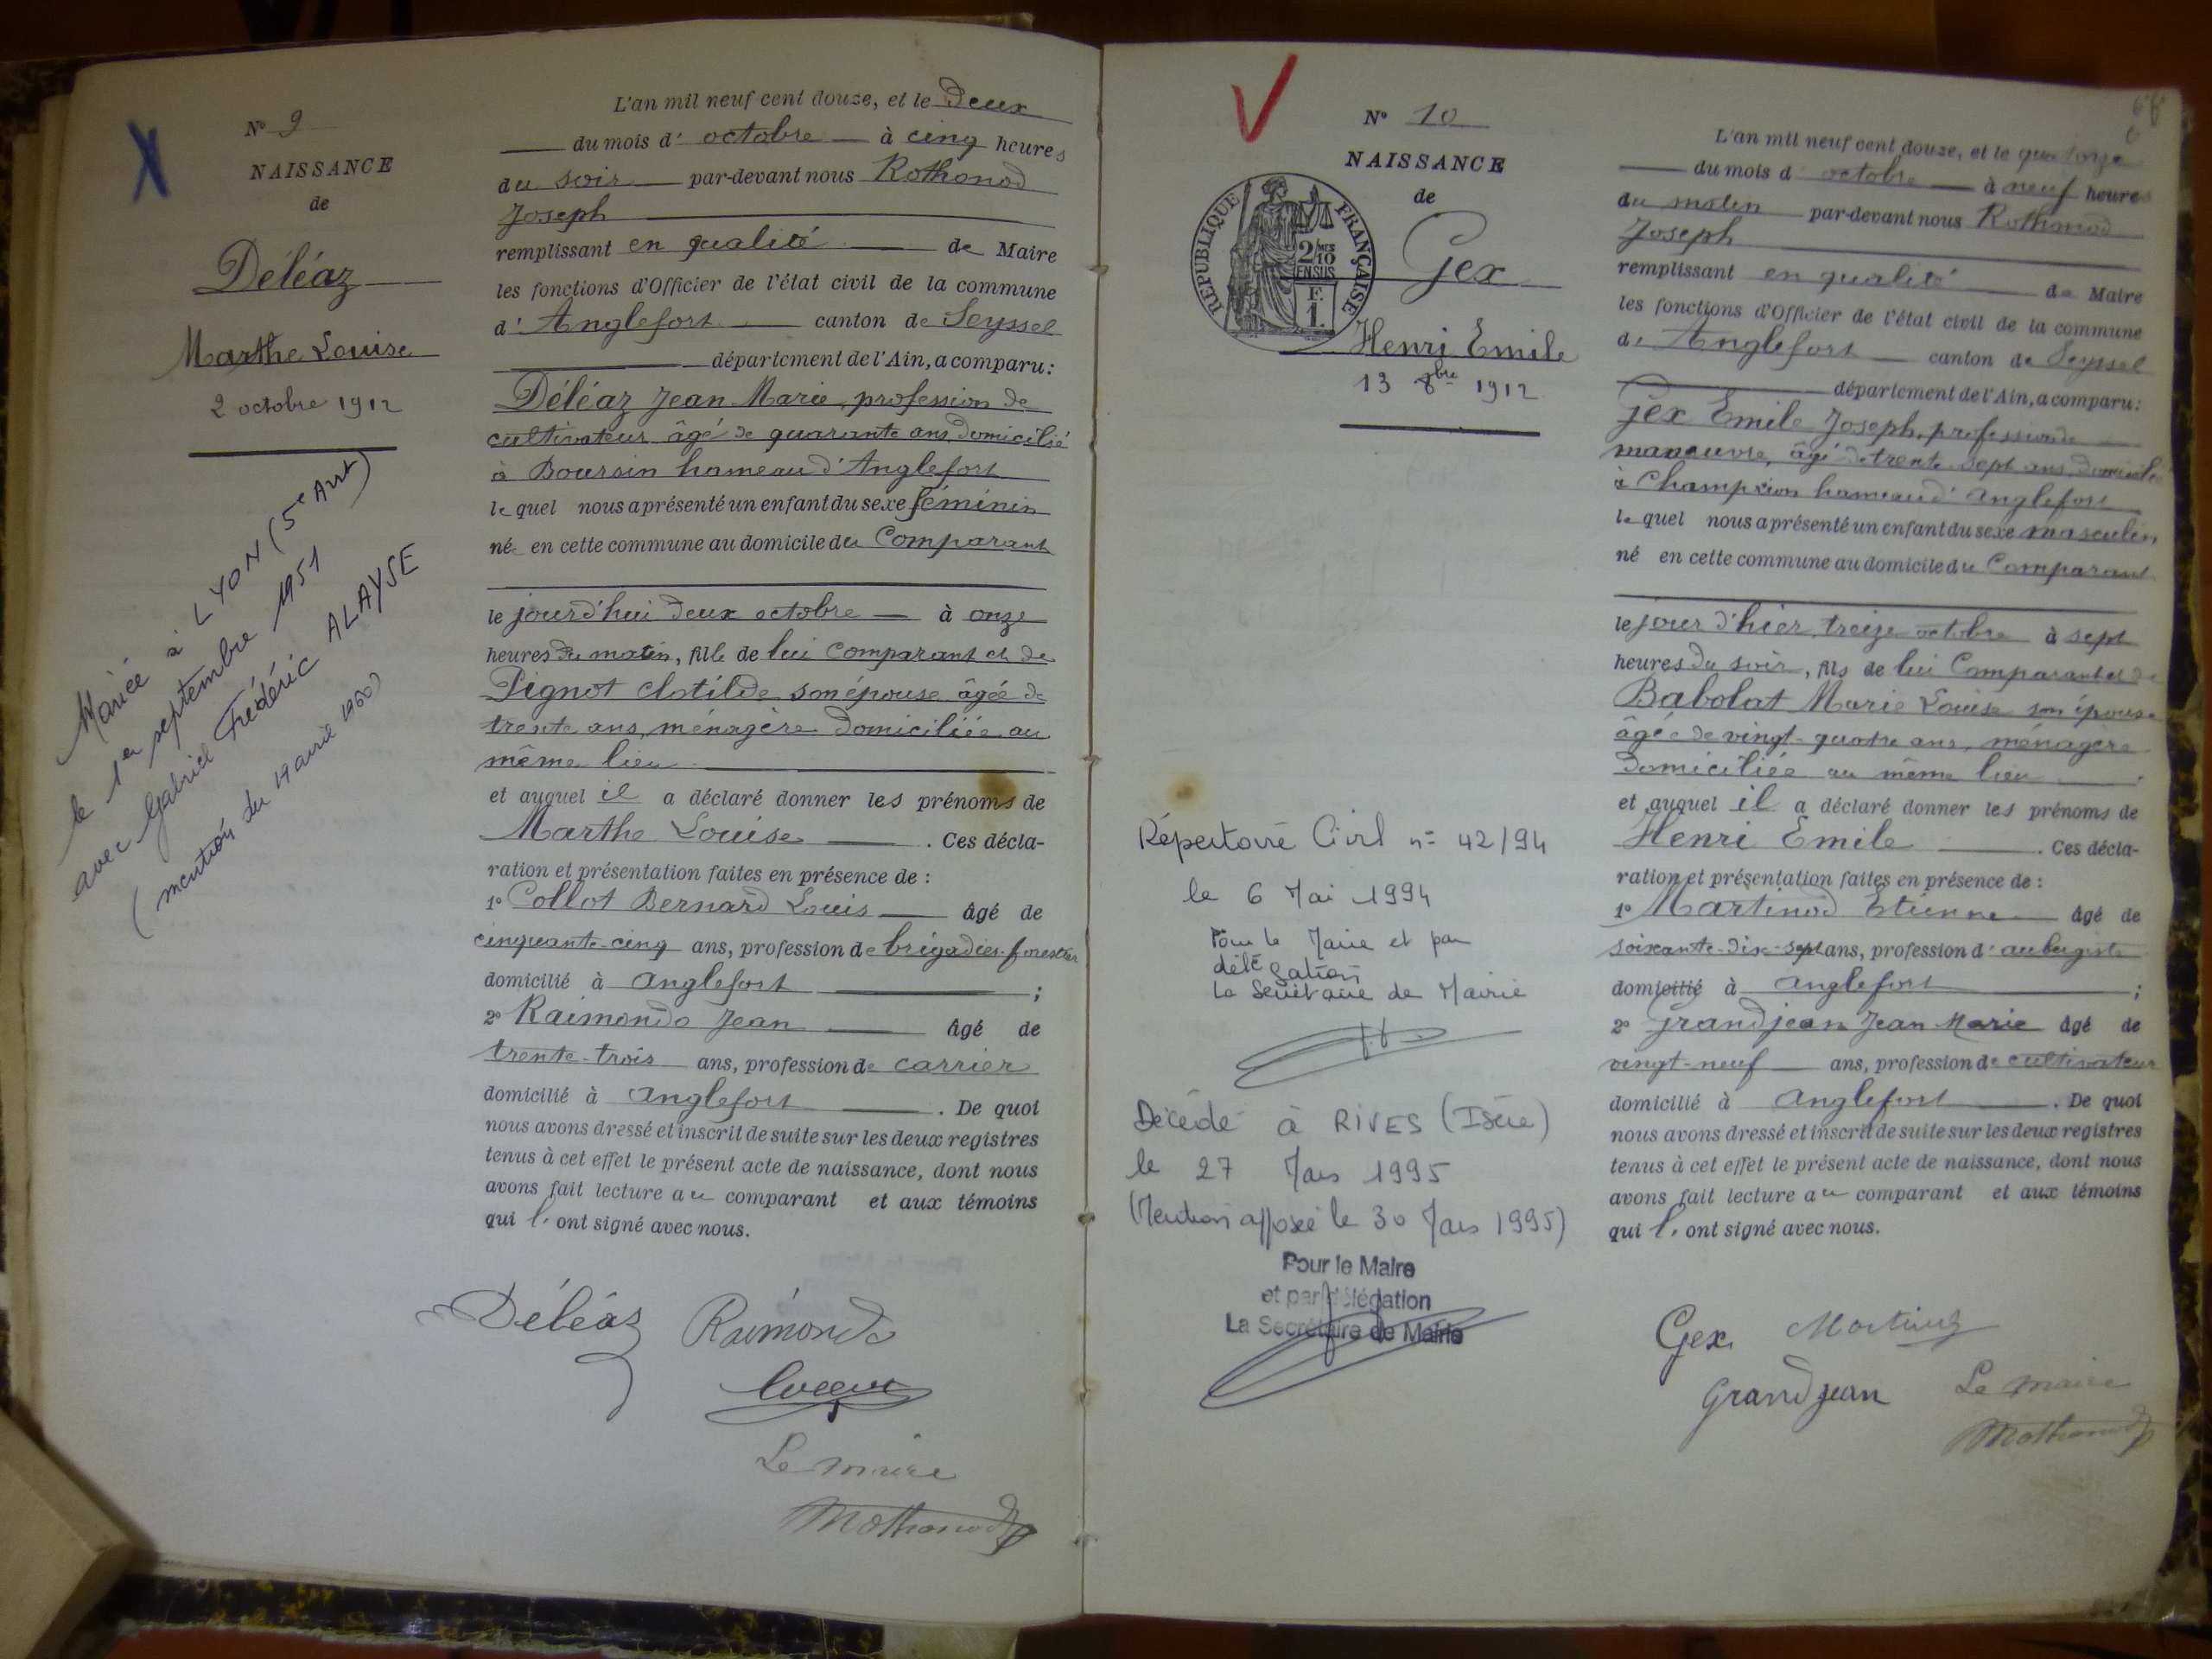 N° 9
NAISSANCE
de
Déléaz
Marthe Louise
2 octobre 1912
Mariée à LYON (5e Arrt)
le 1er septembre 1951
avec Gabriel Frédéric ALAYSE
(mention du 19 avril 1960)
L'an mil neuf cent douze, et le deux
du mois d' octobre à cinq heures
du soir par-devant nous Rothonod
Joseph
remplissant en qualité de Maire
les fonctions d'Officier de l'état civil de la commune
d' Anglefort canton de Seyssel
département de l'Ain, a comparu:
Déléaz Jean Marie, profession de
cultivateur âgé de quarante ans domicilié
à Boursin hameau d'Anglefort
le quel nous a présenté un enfant du sexe féminin
né en cette commune au domicile du Comparant
le jourd'hui deux octobre à onze
heures du matin, fille de lui comparant et de
Pignot Clotilde son épouse âgée de
trente ans, ménagère domiciliée au
même lieu
et auquel il a déclaré donner les prénoms de
Marthe Louise . Ces décla-
ration et présentation faites en présence de :
1° Collot Bernard Louis âgé de
cinquante-cinq ans, profession de brigadier-forestier
domicilié à Anglefort ;
2° Raimondo Jean âgé de
trente-trois ans, profession de carrier
domicilié à Anglefort . De quoi
nous avons dressé et inscrit de suite sur les deux registres
tenus à cet effet le présent acte de naissance, dont nous
avons fait lecture au comparant et aux témoins
qui l' ont signé avec nous.
Déléaz Raimondo
Le maire
Rothonod
N° 10
NAISSANCE
de
RÉPUBLIQUE FRANÇAISE
2/10
EN SUS
F.
1.
Gex
Henri Emile
13 8bre 1912
Répertoire Civil n° 42/94
le 6 Mai 1994
Pour le Maire et par
délégation
La Secrétaire de Mairie
Décédé à RIVES (Isère)
le 27 Mars 1995
(Mention apposée le 30 Mars 1995)
Pour le Maire
et par délégation
La Secrétaire de Mairie
L'an mil neuf cent douze, et le quatorze
du mois d octobre à neuf heures
du matin par-devant nous Rothonod
Joseph
remplissant en qualité de Maire
les fonctions d'Officier de l'état civil de la commune
d' Anglefort canton de Seyssel
département de l'Ain, a comparu:
Gex Emile Joseph, profession de
manœuvre, âgé de trente sept ans, domicilié
à Champrion hameau d'Anglefort
le quel nous a présenté un enfant du sexe masculin
né en cette commune au domicile du Comparant
le jour d'hier, treize octobre à sept
heures du soir, fils de lui Comparant et de
Babolat Marie Louise son épouse
âgée de vingt-quatre ans, ménagère
domiciliée au même lieu .
et auquel il a déclaré donner les prénoms de
Henri Emile . Ces décla-
ration et présentation faites en présence de :
1° Martinod Etienne âgé de
soixante-dix-sept ans, profession d' aubergiste
domicilié à Anglefort ;
2° Grandjean Jean Marie âgé de
vingt-neuf ans, profession de cultivateur
domicilié à Anglefort . De quoi
nous avons dressé et inscrit de suite sur les deux registres
tenus à cet effet le présent acte de naissance, dont nous
avons fait lecture au comparant et aux témoins
qui l' ont signé avec nous.
Gex
Grandjean Le maire
Rothonod